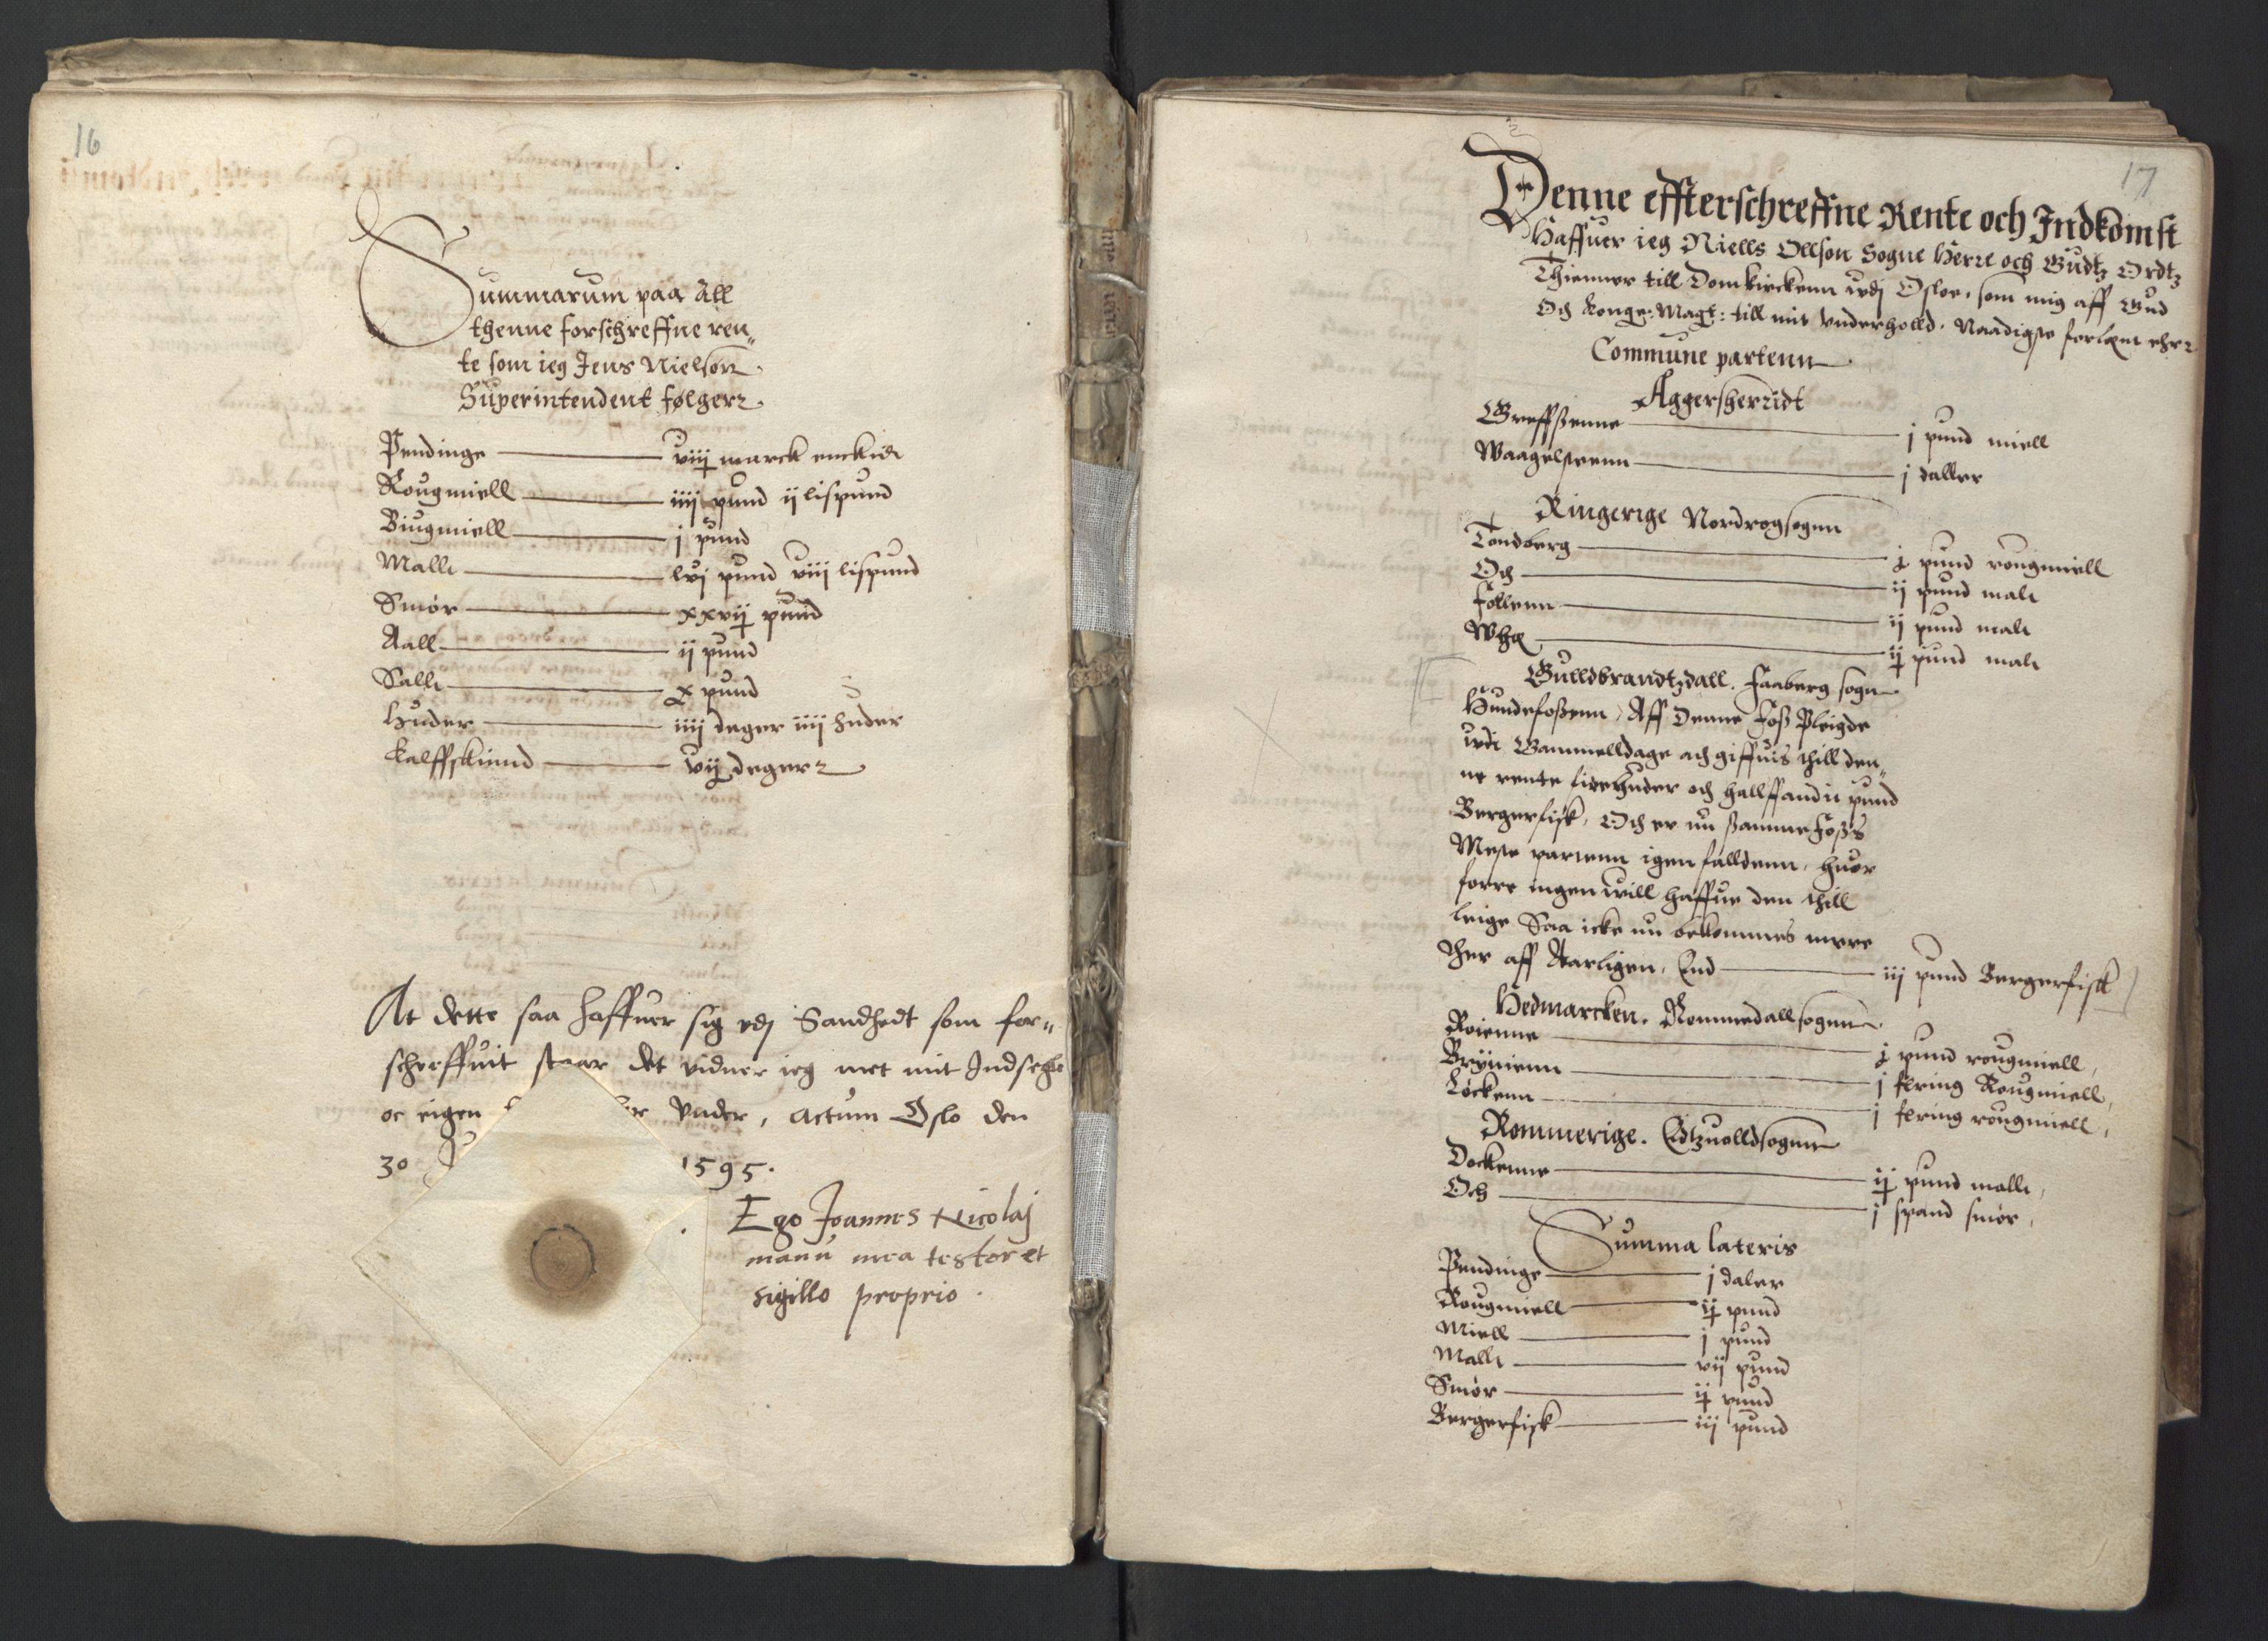 16
Summarum paa All
thenne forschreffne ren„
te som ieg Jens Nielsøn
Superintendent følgerr
Pendinge viij marck enckidt
Rougmiell iiij pund ij lispund
Biugmiell j pund
Mallt lvj pund viij lispund
Smør xxvij pund
Aall ij pund
Sallt x pund
Huder iiij deger iiij huder
Kalffskiind vij degerr
At dette saa haffuer sig vdj Sandhedt som for„
schreffuit staar det vidner ieg met mit Indsegle
oc eigen vnder, Actum Oslo den
30 1595.
Ego Joannes Nicolaj
manu mea testor et
sigillo proprio.
17
Denne effterschreffne Rente och Indkomst
Haffuer ieg Niells Ollsøn Sogne Herre och Gudtz Ordtz
Thienner till Domkirckenn wdj Osloe, som mig aff Gud
Och Konge: Magt: till mit vnderholld. Naadigst forlent ehrr
Commune partenn
Aggersherridt
Greffsßenne j pund miell
Waagelsteenn j daller
Ringerige Nordrogsogenn
Tandberg j pund rougmiell
Och ij pund malt
Follenn ij pund malt
Whæ ij pund malt
Gulldbrandtzdall. Faaberg sogn
Hundefoßenn, Aff Denne Foß Pleigde
wdi Gammelldage at giffuis thill den„
ne rente huder och hallffandit pund
Bergerfisk, Och er nu ßamme Foß's
Meste partenn igen falldenn, huor
forre ingen will haffue den thill
leige Saa icke nu bekommes mere
ther aff Aarligen, End iij pund Bergerfisk
Hedmarcken. Rommedall sogenn
Roienne j pund rougmiell,
Brynienn j fering Rougmiell,
Løckenn j fering rougmiell,
Rommerige. Edtzuolldsogenn
Dockenne ij pund mallt,
Och j spand smør,
Summa lateris
Pendinge j daler
Rougmiell ij pund
Miell j pund
Mallt vij pund
Smør ij pund
Bergerfisk iij pund